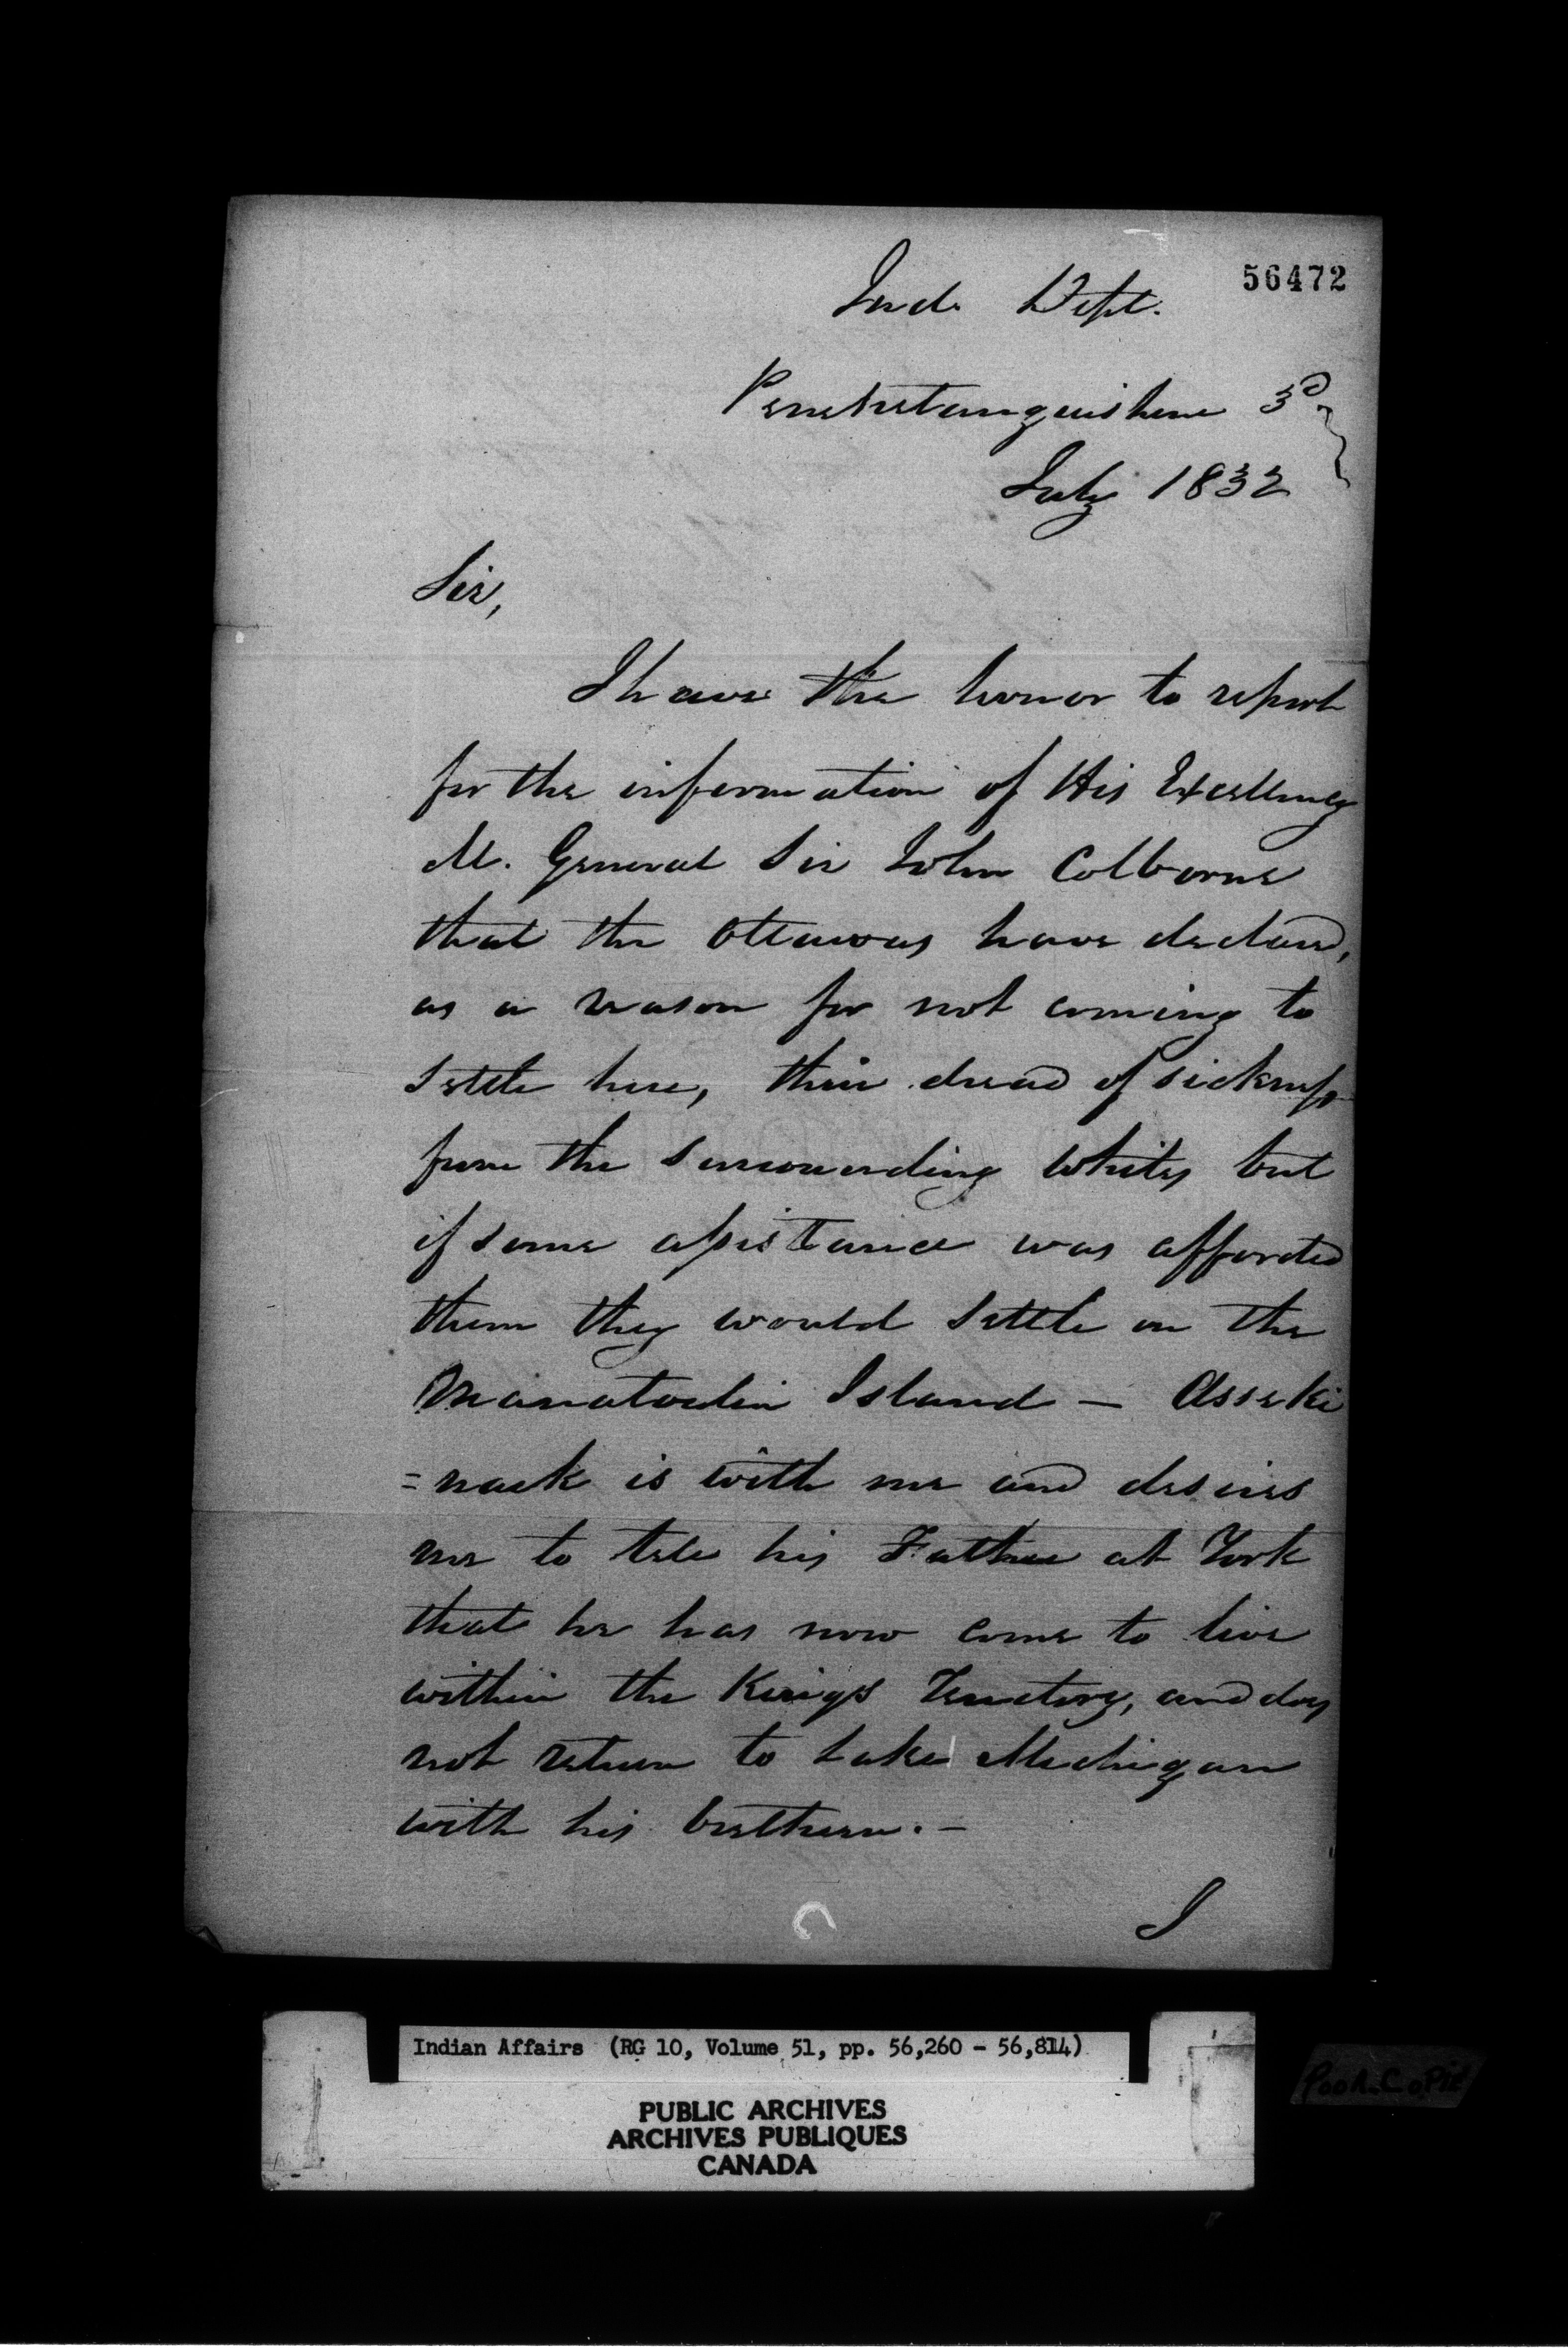 56472
Ind. Dept.
Penetetanguishene 3d
July 1832
Sir,
I have the honor to report
for the information of His Excellency
M. General Sir John Colborne
that the Ottawas have declared,
as a reason for not coming to
settle here, their dread of sickness
from the surrounding Whites but
if some assistance was afforded
them they would settle on the
Manatoulin Island — Asseki
=nack is with me and desires
me to tell his Father at York
that he has now come to live
within the Kings Territory, and does
not return to Lake Michigan
with his brethern. —
I
Indian Affairs (RG 10, Volume 51, pp. 56,260 - 56,814)
POOR COPIE
PUBLIC ARCHIVES
ARCHIVES PUBLIQUES
CANADA